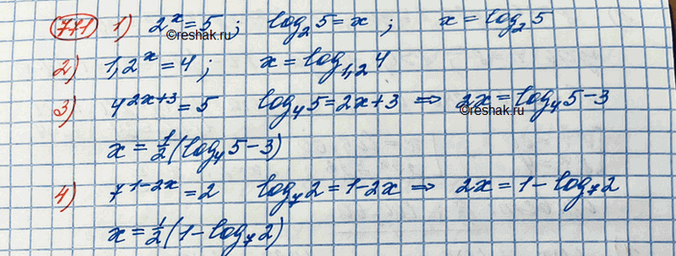 711 1) 2^x = 5 ; log_2 5 = x ; x = log_2 5
©reshak.ru
2) 1,2^x = 4 ; x = log_{1,2} 4
3) 4^{2x+3} = 5 log_4 5 = 2x+3 ⇒ 2x = log_4 5 − 3
©reshak.ru
x = \frac{1}{2} (log_4 5 − 3)
4) 7^{1−2x} = 2 log_7 2 = 1−2x ⇒ 2x = 1 − log_7 2
x = \frac{1}{2} (1 − log_7 2)